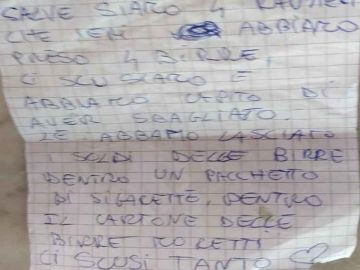 SALVE SIAMO 4 RAGAZZI
CHE IERI ABBIAMO
PRESO 4 BIRRE,
CI SCUSIAMO E
ABBIAMO CAPITO DI
AVER SBAGLIATO.
LE ABBIAMO LASCIATO
I SOLDI DELLE BIRRE
DENTRO UN PACCHETTO
DI SIGARETTE, DENTRO
IL CARTONE DELLE
BIRRE MORETTI
CI SCUSI TANTO ♡